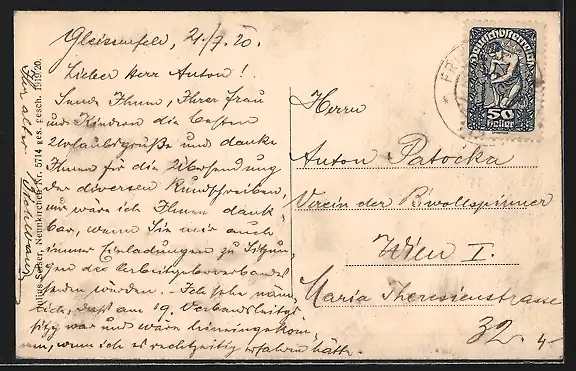 Gleissenfeld, 21/7. 20.
Lieber Herr Anton!
Sende Ihnen, Ihrer Frau
und Kindern die besten
Urlaubsgrüße und danke
Ihnen für die Übersendung
der diversen Rundschreiben,
nur wäre ich Ihnen dank-
bar, wenn Sie mir auch
immer Einladungen zu Sitzun-
gen des Arbeitgeberverbandes
senden würden. Ich sehe näm-
lich, daß am 19. Verbandsleitgs
sitzg war und wäre hineingekom,
men, wenn ich es rechtzeitig erfahren hätte.
Ihr alter
Julius Seiser, Neunkirchen Nr. 5714 ges. gesch. 1919/20.
Deutschösterreich
50
Heller
Herrn
Anton Patocka
Verein der B'wollspinner
Wien I.
Maria Theresienstrasse
32. 4.